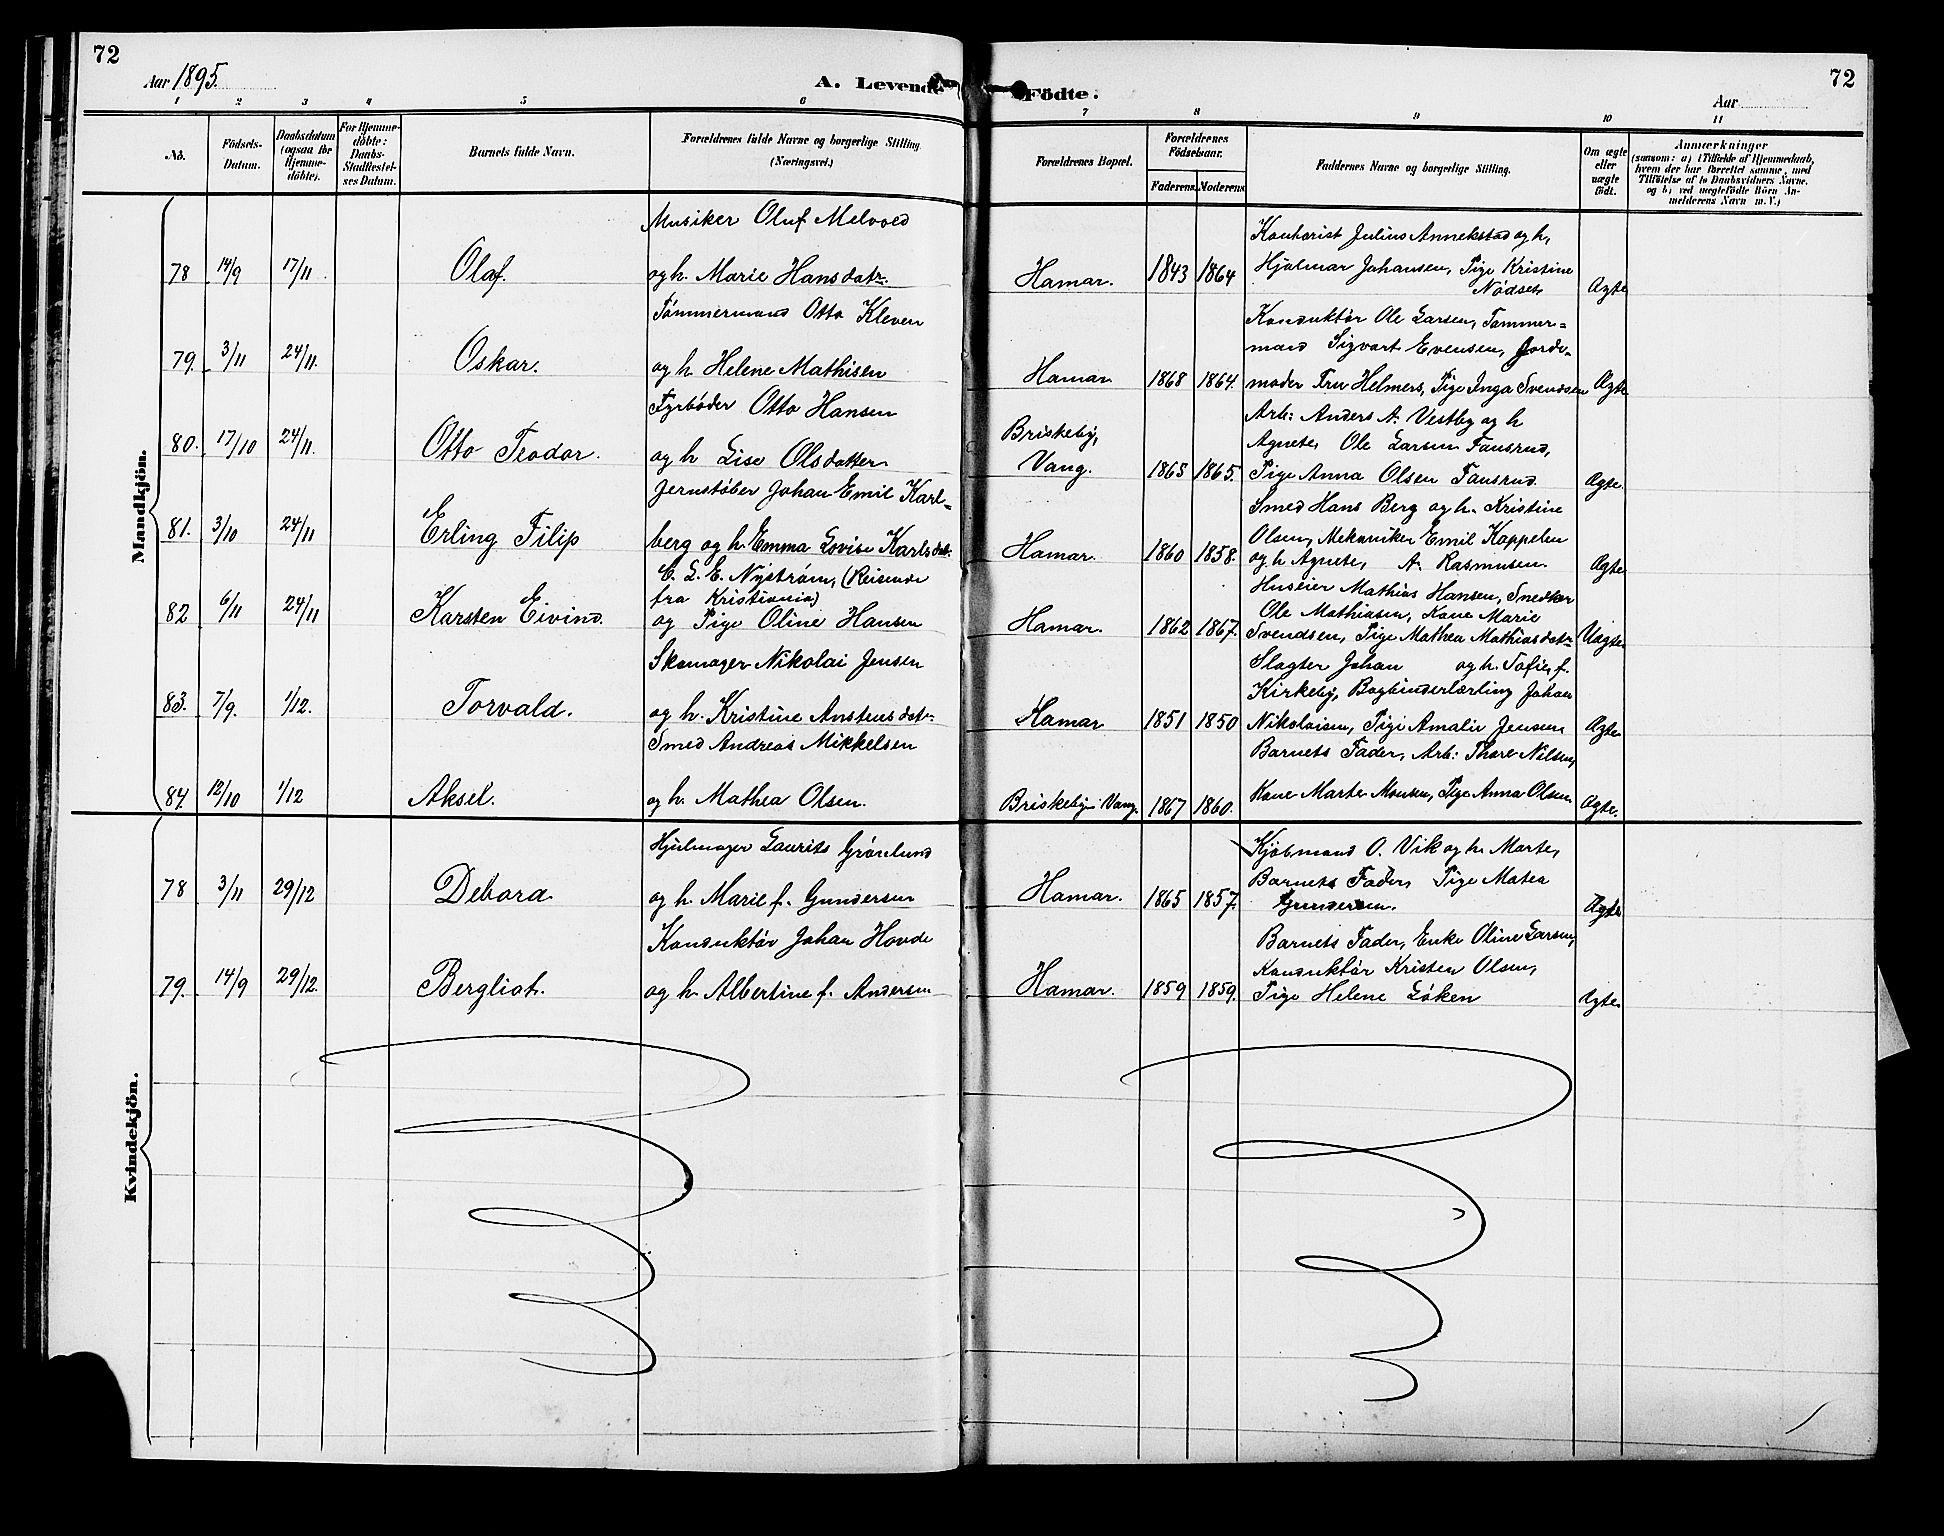 72
Aar 1895.
A. Levende
Födte.
72
Aar
1 2 3 4 5 6 7 8 9 10 11
No.
Födsels-
Datum.
Daabsdatum
(ogsaa for
Hjemme-
döbte).
For Hjemme-
döbte:
Daabs-
Stadfæstel-
ses Datum.
Barnets fulde Navn.
Forældrenes fulde Navne og borgerlige Stilling.
(Næringsvei.)
Forældrenes Bopæl.
Forældrenes
Födselsaar.
Faderens. Moderens.
Faddernes Navne og borgerlige Stilling.
Om ægte
eller
uægte
födt.
Anmærkninger
(saasom: a) i Tilfælde af Hjemmedaab,
hvem der har forrettet samme, med
Tilföielse af to Daabsvidners Navne,
og b) ved uægtefödte Börn An-
melderens Navn m. V.)
Mandkjön.
Musiker Oluf Melvold
78 14/9 17/11 Olaf. og h. Marie Hansdatr. Hamar. 1843 1864
Kontorist Julius Annekstad og h,
Hjalmar Johansen, Pige Kristine
Nødset Ægte
Tømmermand Otto Kleven
79. 3/11 24/11. Oskar. og h. Helene Mathisen Hamar. 1868 1864.
Konduktør Ole Larsen, Tømmer=
mand Sigvart Evensen, Jorde-
moder Fru Helmers, Pige Inga Svendsen Ægte
Fyrbøder Otto Hansen
80. 17/10 24/11. Otto Teodor. og h Lise Olsdatter Briskeby,
Vang. 1865 1865.
Arb: Anders A. Vestby og h
Agnete, Ole Larsen Fansrud,
Pige Anna Olsen Fansrud Ægte.
Jernstøber Johan Emil Karl=
81. 3/10 24/11 Erling Filip berg og h Emma Lovise Karlsdat. Hamar. 1860 1858.
Smed Hans Berg og h. Kristine
Olsen, Mekaniker Emil Koppelen
og h Agnete, A. Rasmusen. Ægte
C. L. E. Nystrøm, (Reisende
fra Kristiania)
82 6/11 24/11 Karsten Eivind. og Pige Oline Hansen Hamar. 1862 1867.
Huseier Mathias Hansen, Snedker
Ole Mathiasen, Kone Marie
Svendsen, Pige Mathea Mathiasdatr Uægte.
Skomager Nikolai Jensen
83. 7/9. 1/12. Torvald. og h. Kristine Anstensdatr Hamar 1851 1850
Slagter Johan og h. Sofie f.
Kirkeby, Bogbinderlærling Johan
Nikolaisen, Pige Amalie Jensen Ægte
Smed Andreas Mikkelsen
84. 12/10 1/12 Aksel. og h. Mathea Olsen. Briskeby Vang. 1867 1860.
Barnets Fader, Arb: Thore Nilsen,
Kone Marte Monsen, Pige Anna Olsen Ægte.
Kvindekjön.
Hjulmager Laurits Grønlund
78 3/11 29/12 Debora. og h. Marie f. Gundersen Hamar. 1865 1857.
Kjøbmand O. Vik og h. Marte,
Barnets Fader, Pige Matea
Gundersen. Ægte
Konduktør Johan Hovde
79. 14/9 29/12. Bergliot. og h. Albertine f. Andersen Hamar. 1859 1859.
Barnets Fader, Enke Oline Larsen,
Konduktør Kristen Olsen,
Pige Helene Løken Ægte